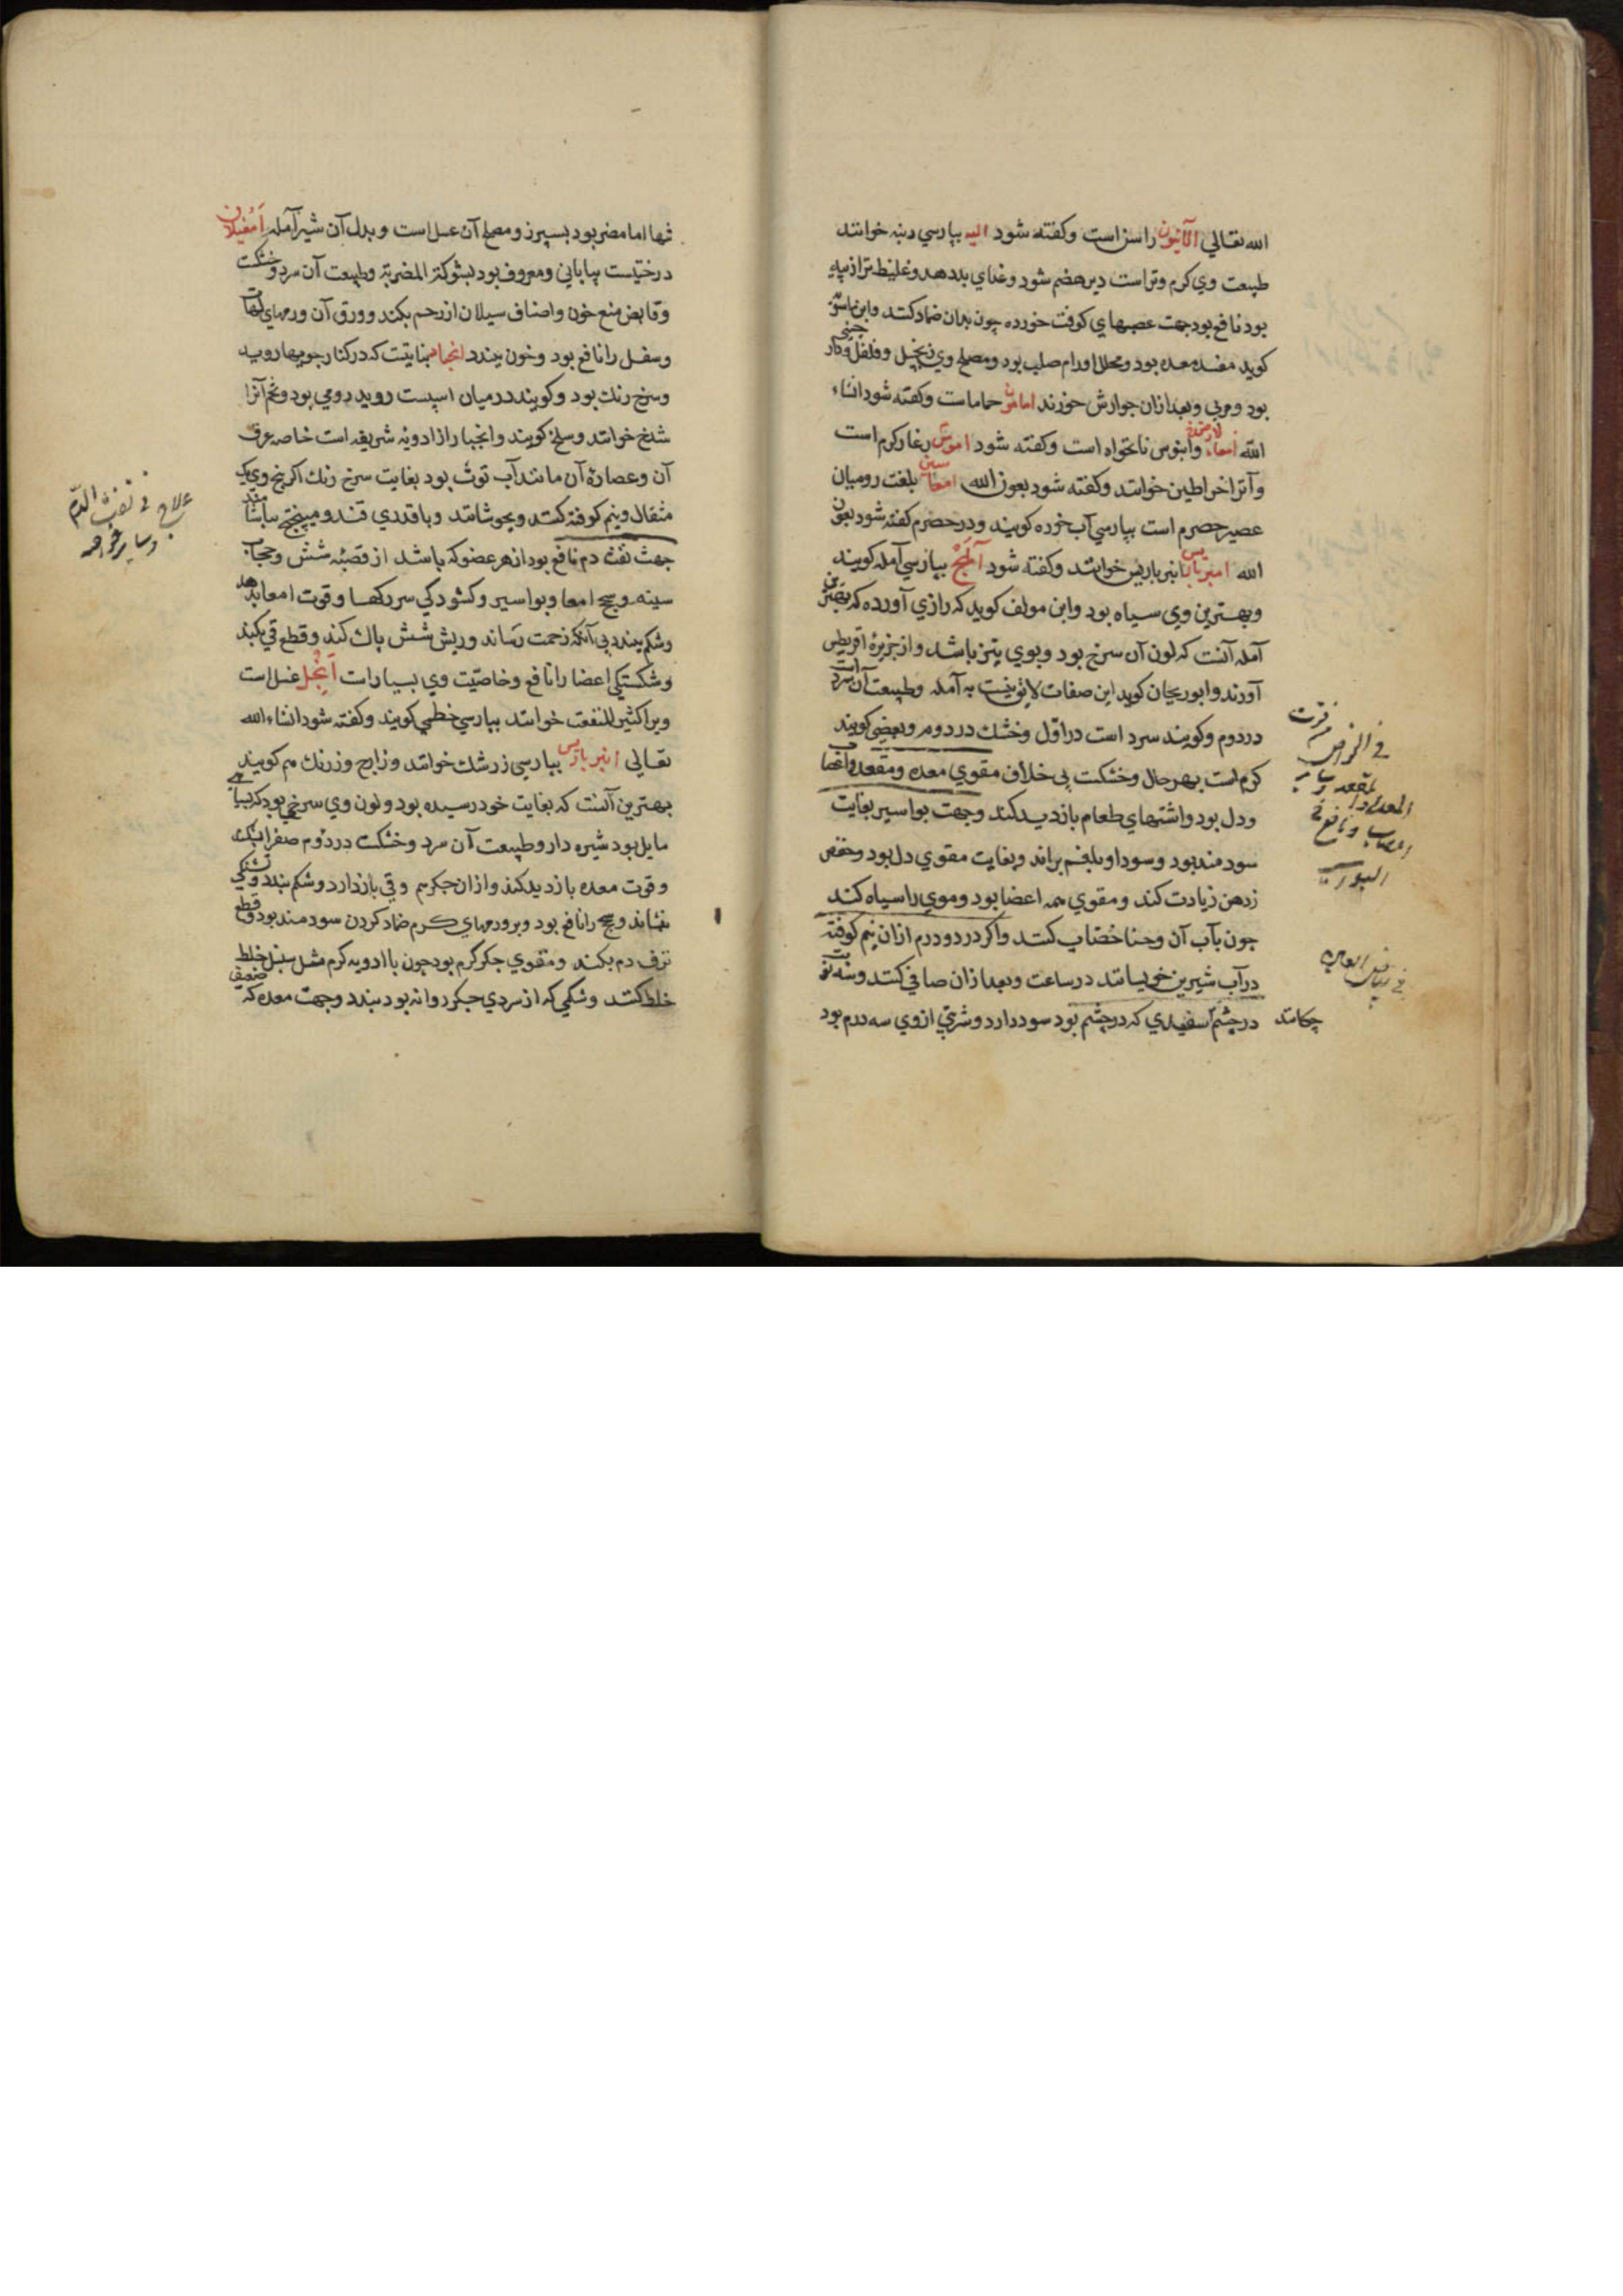 الله تعالي الآنیون راسن است وکفته شود الیه بپارسي دنبه خوانند
طبیعت وي کرم وتر است دیر هضم شود وغذاي بد دهد وغلیظ تر از پیه
بود نافع بود جهت عصبهاي کوفت خورده چون بدان ضماد کنند وابن ماسویه
کوید مفسد معده بود ومحلل اورام صلب بود ومصلح وي زنجبیل وفلفل ودار چیني
بود ومربي وبعد از آن جوارش خورند امامون حماماست وکفته شود انشاء
الله امعاء لارض وابنوس نانخواه است وکفته شود اموش زغار کرم است
وآنرا خراطین خوانند وکفته شود بعون الله بلغت رومیان
عصیر حصرم است بپارسي آب غوره کویند ودر حصرم کفته شود بعون
الله امبرباریس انبرباریس خوانند وکفته شود آملج بپارسي آمله کویند
وبهترین وي سیاه بود وابن مولف کوید که رازي آورده که بهترین
آمله آنست که لون آن سرخ بود وبوي تیز باشد واز جزیرهٔ اقریطس
آورند وابوریحان کوید این صفات لایق نیست به آمله وطبیعت آن سرد است
در دوم وکویند سرد است در اول وخشک در دوم وبعضي کویند
کرم است بهر حال وخشکست بی خلاف مقوي معده ومقعد واعصاب
ودل بود واشتهاي طعام بازدید کند وجهت بواسیر بغایت
سودمند بود وسودا وبلغم براند وبغایت مقوي دل بود وحفظ
وذهن زیادت کند ومقوي همه اعضا بود وموي را سیاه کند
چون بآب آن وحنا خضاب کنند واکر دو درم از آن نیم کوفته
در آب شیرین خیسانند در ساعت وبعد از آن صافي کنند وسه نوبت
در چشم چکانند سفیدي که در چشم بود سود دارد وشربتي از وي سه درم بود
في بیاض العین
تنها اما مضر بود بسپرز ومصلح آن عسل است وبدل آن شیر آمله امغیلان
درختیست بیاباني ومعروف بود بشوکة المضریة وطبیعت آن سرد وخشکست
وقابض منع خون واصناف سیلان از رحم بکند وورق آن ورمهاي لهات
وسفل را نافع بود وخون ببندد انجبار نباتیست که در کنار جویها روید
وسرخ رنک بود وکویند در میان اسپست روید رومي بود وتخم آنرا
شلخ خوانند وسلخ کویند وانجبار از ادویهٔ شریفه است خاصه عرق
آن وعصارهٔ آن مانند آب توث بود بغایت سرخ رنک اکر بیخ وي یک
مثقال ونیم کوفته کنند وبجوشانند وبا قدري قند ومیپختج بیاشامند
جهت نفث دم نافع بود از هر عضو که باشد از قصبهٔ شش وحجاب
سینه وسحج امعا وبواسیر وکشودکي سر رکها وقوت امعا بدهد
وشکم ببندد بی آنکه زحمت رساند وریش شش پاک کند وقطع قي بکند
وشکستکي اعضا را نافع وخاصیت وي بسیار است انجل غسل است
ویرا کثیر المنفعت خوانند بپارسي خطمي کویند وکفته شود انشاء الله
تعالي انبرباریس بپارسي زرشک خوانند وزارج وزرنک هم کویند
بهترین آنست که بغایت خود رسیده بود ولون وي سرخي بود که بسیاهي
مایل بود شیره دار وطبیعت آن سرد وخشکست در دوم صفرا بشکند
وقوت معده بازدید کند واز آن جکر هم وقي بازدارد وشکم ببندد وتشنکي
بنشاند وسحج را نافع بود وبر ورمهاي کرم ضماد کردن سودمند بود وقطع
نزف دم بکند ومقوي جکر کرم بود چون با ادویه کرم مثل سنبل خلط
خلط کنند وشکمي که از سردي جکر روانه بود ببندد وجهت معده که ضعیف
علاج في نفث الدم
وسایر خواصه